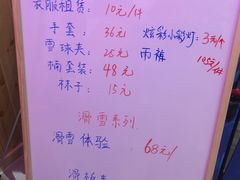 衣服租赁: 10元/件
手套: 36元 炫彩小彩灯: 3元/个
雪球夹: 25元 雨裤
桶套装: 48元 10元/件
杯子: 15元
滑雪系列
滑雪体验 68元/